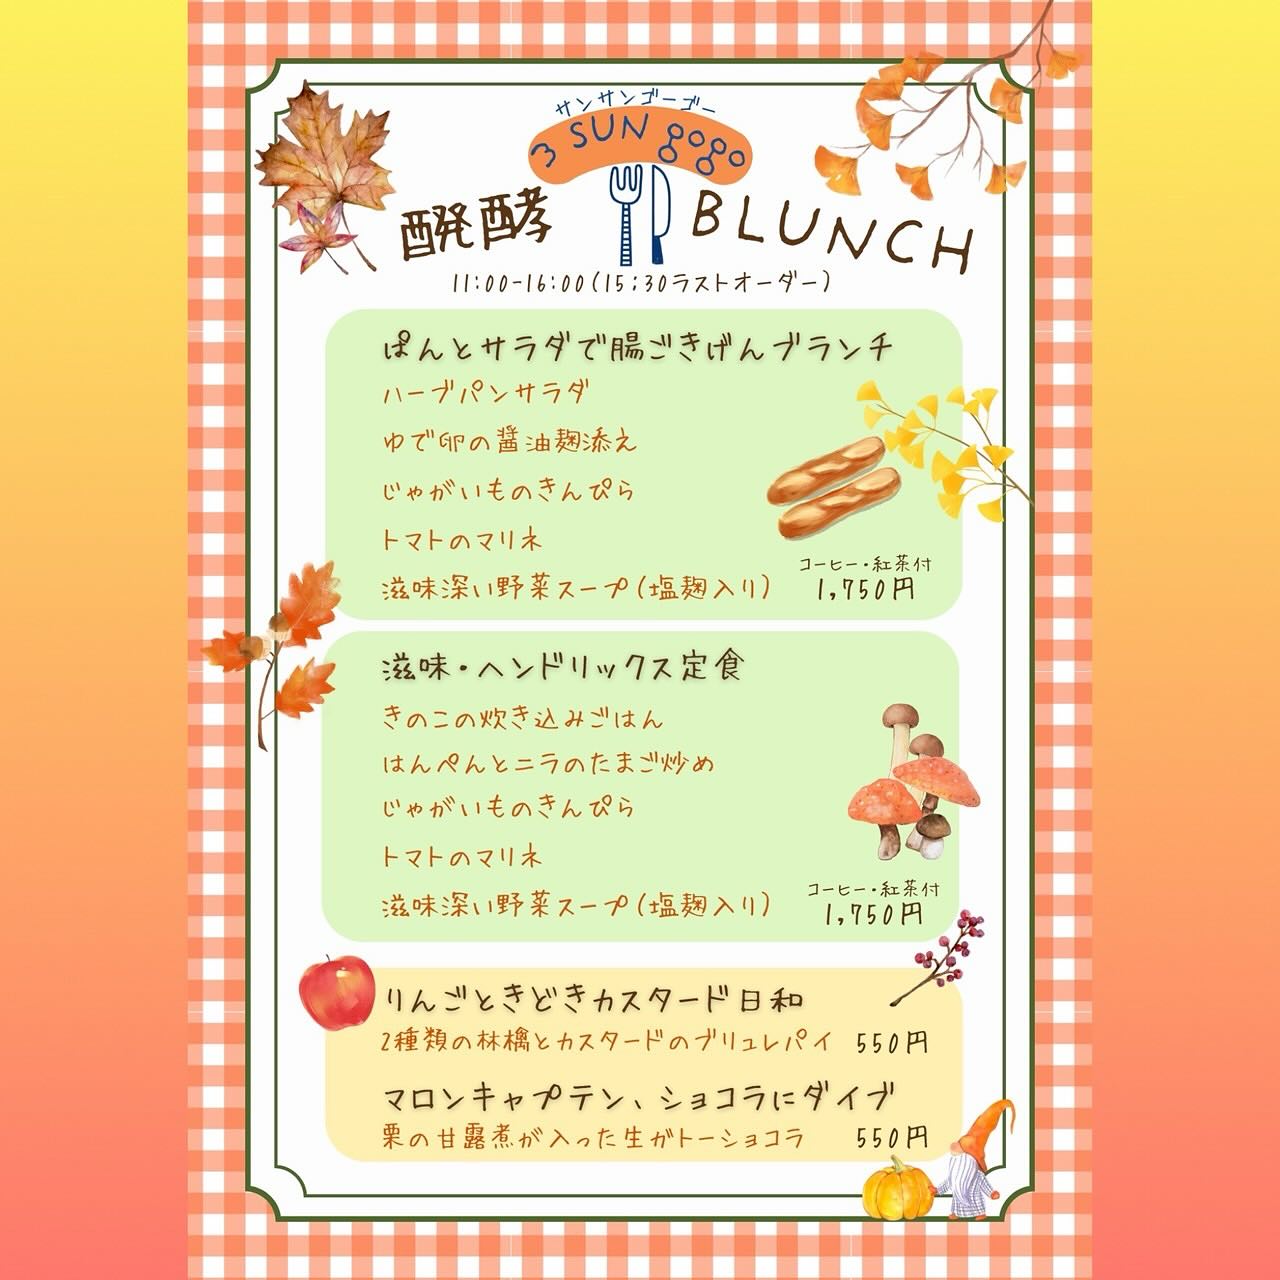 サンサンゴーゴー
3 SUN gogo
醗酵 BLUNCH
11:00-16:00(15:30ラストオーダー)
ぱんとサラダで腸ごきげんブランチ
ハーブパンサラダ
ゆで卵の醤油麹添え
じゃがいものきんぴら
トマトのマリネ
滋味深い野菜スープ(塩麹入り)
コーヒー・紅茶付
1,750円
滋味・ヘンドリックス定食
きのこの炊き込みごはん
はんぺんとニラのたまご炒め
じゃがいものきんぴら
トマトのマリネ
滋味深い野菜スープ(塩麹入り)
コーヒー・紅茶付
1,750円
りんごときどきカスタード日和
2種類の林檎とカスタードのブリュレパイ 550円
マロンキャプテン、ショコラにダイブ
栗の甘露煮が入った生ガトーショコラ 550円